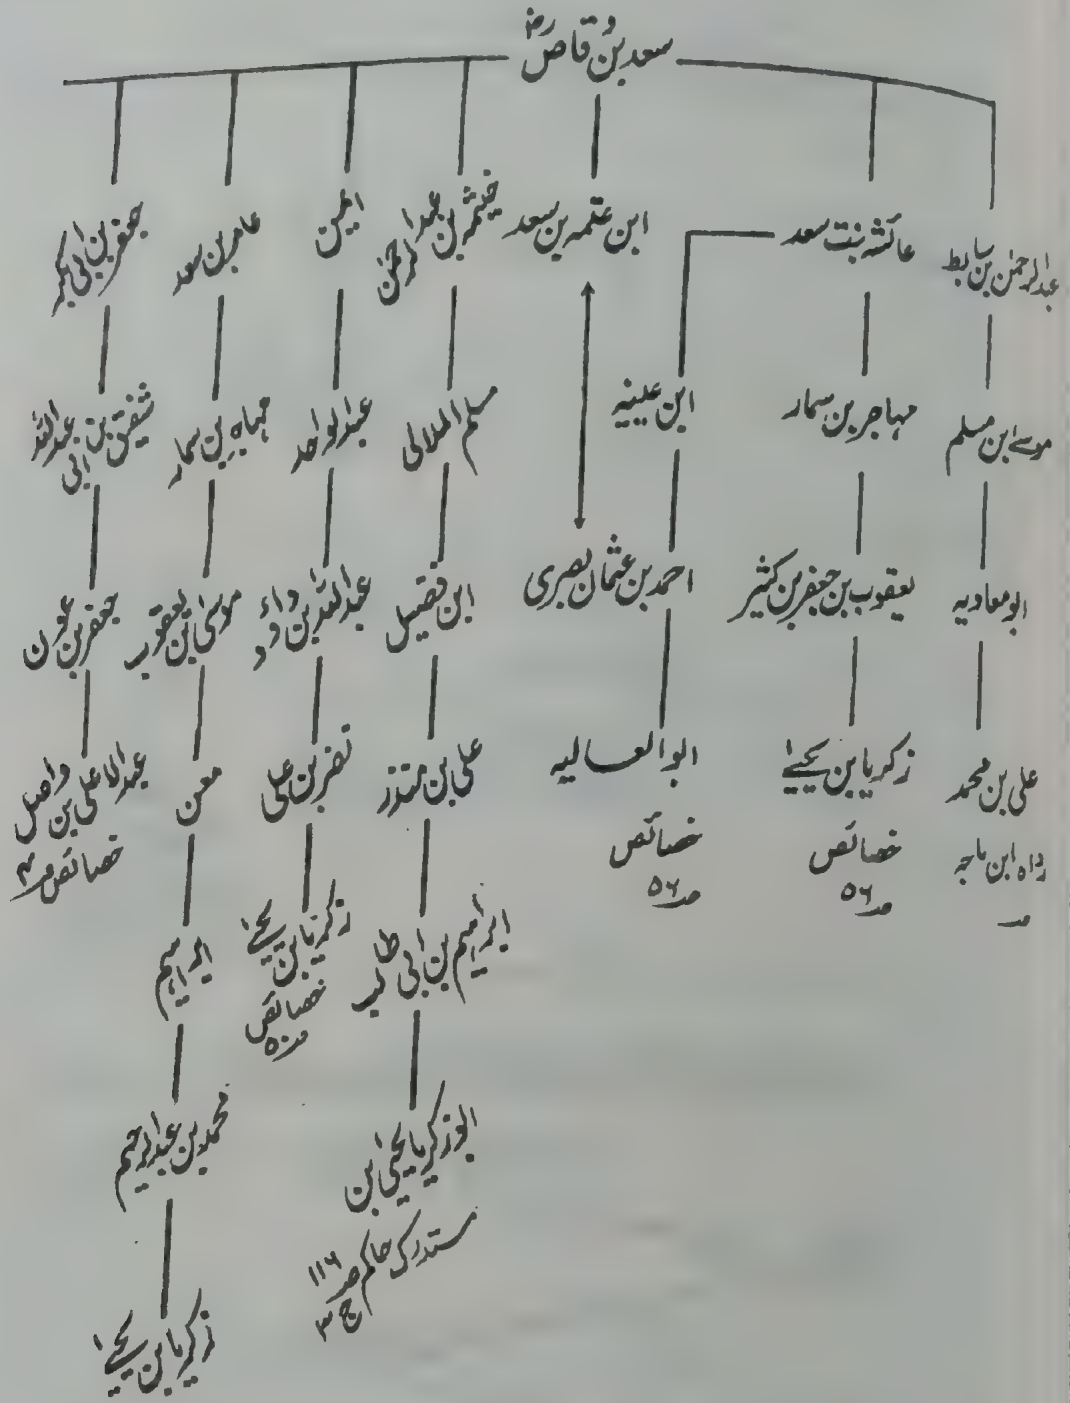 سعد بن وقاص رض
عبدالرحمٰن بن سابط
موسےٰ ابن مسلم
ابو معاویہ
علی بن محمد
رواہ ابن ماجہ
صہ
عائشہ بنت سعد
مہاجر بن سمار
یعقوب بن جعفر بن کثیر
زکریا بن یحییٰ
خصائص
صہ ۵۶
ابن عیینہ
احمد بن عثمان بصری
ابو العالیہ
خصائص
صہ ۵۶
ابن عقمہ بن سعد
خیثمہ بن عبدالرحمٰن
مسلم الملائی
ابن فضیل
علی بن منذر
ابراہیم بن ابی طالب
ابو زکریا یحییٰ ابن
مستدرک حاکم صہ ۱۱۶
ج ۳
ایمن
عبدالواحد
عبداللہ بن داؤد
نضر بن علی
زکریا بن یحییٰ
خصائص
صہ ۵۰
عامر بن سعد
مہاجر بن سمار
موسیٰ بن یعقوب
معن
ابراہیم
محمد بن عبدالرحیم
زکریا بن یحییٰ
جعفر بن ابی بکر
شفیق بن ابی عبداللہ
جعفر بن عون
عبدالاعلی بن واصل
خصائص